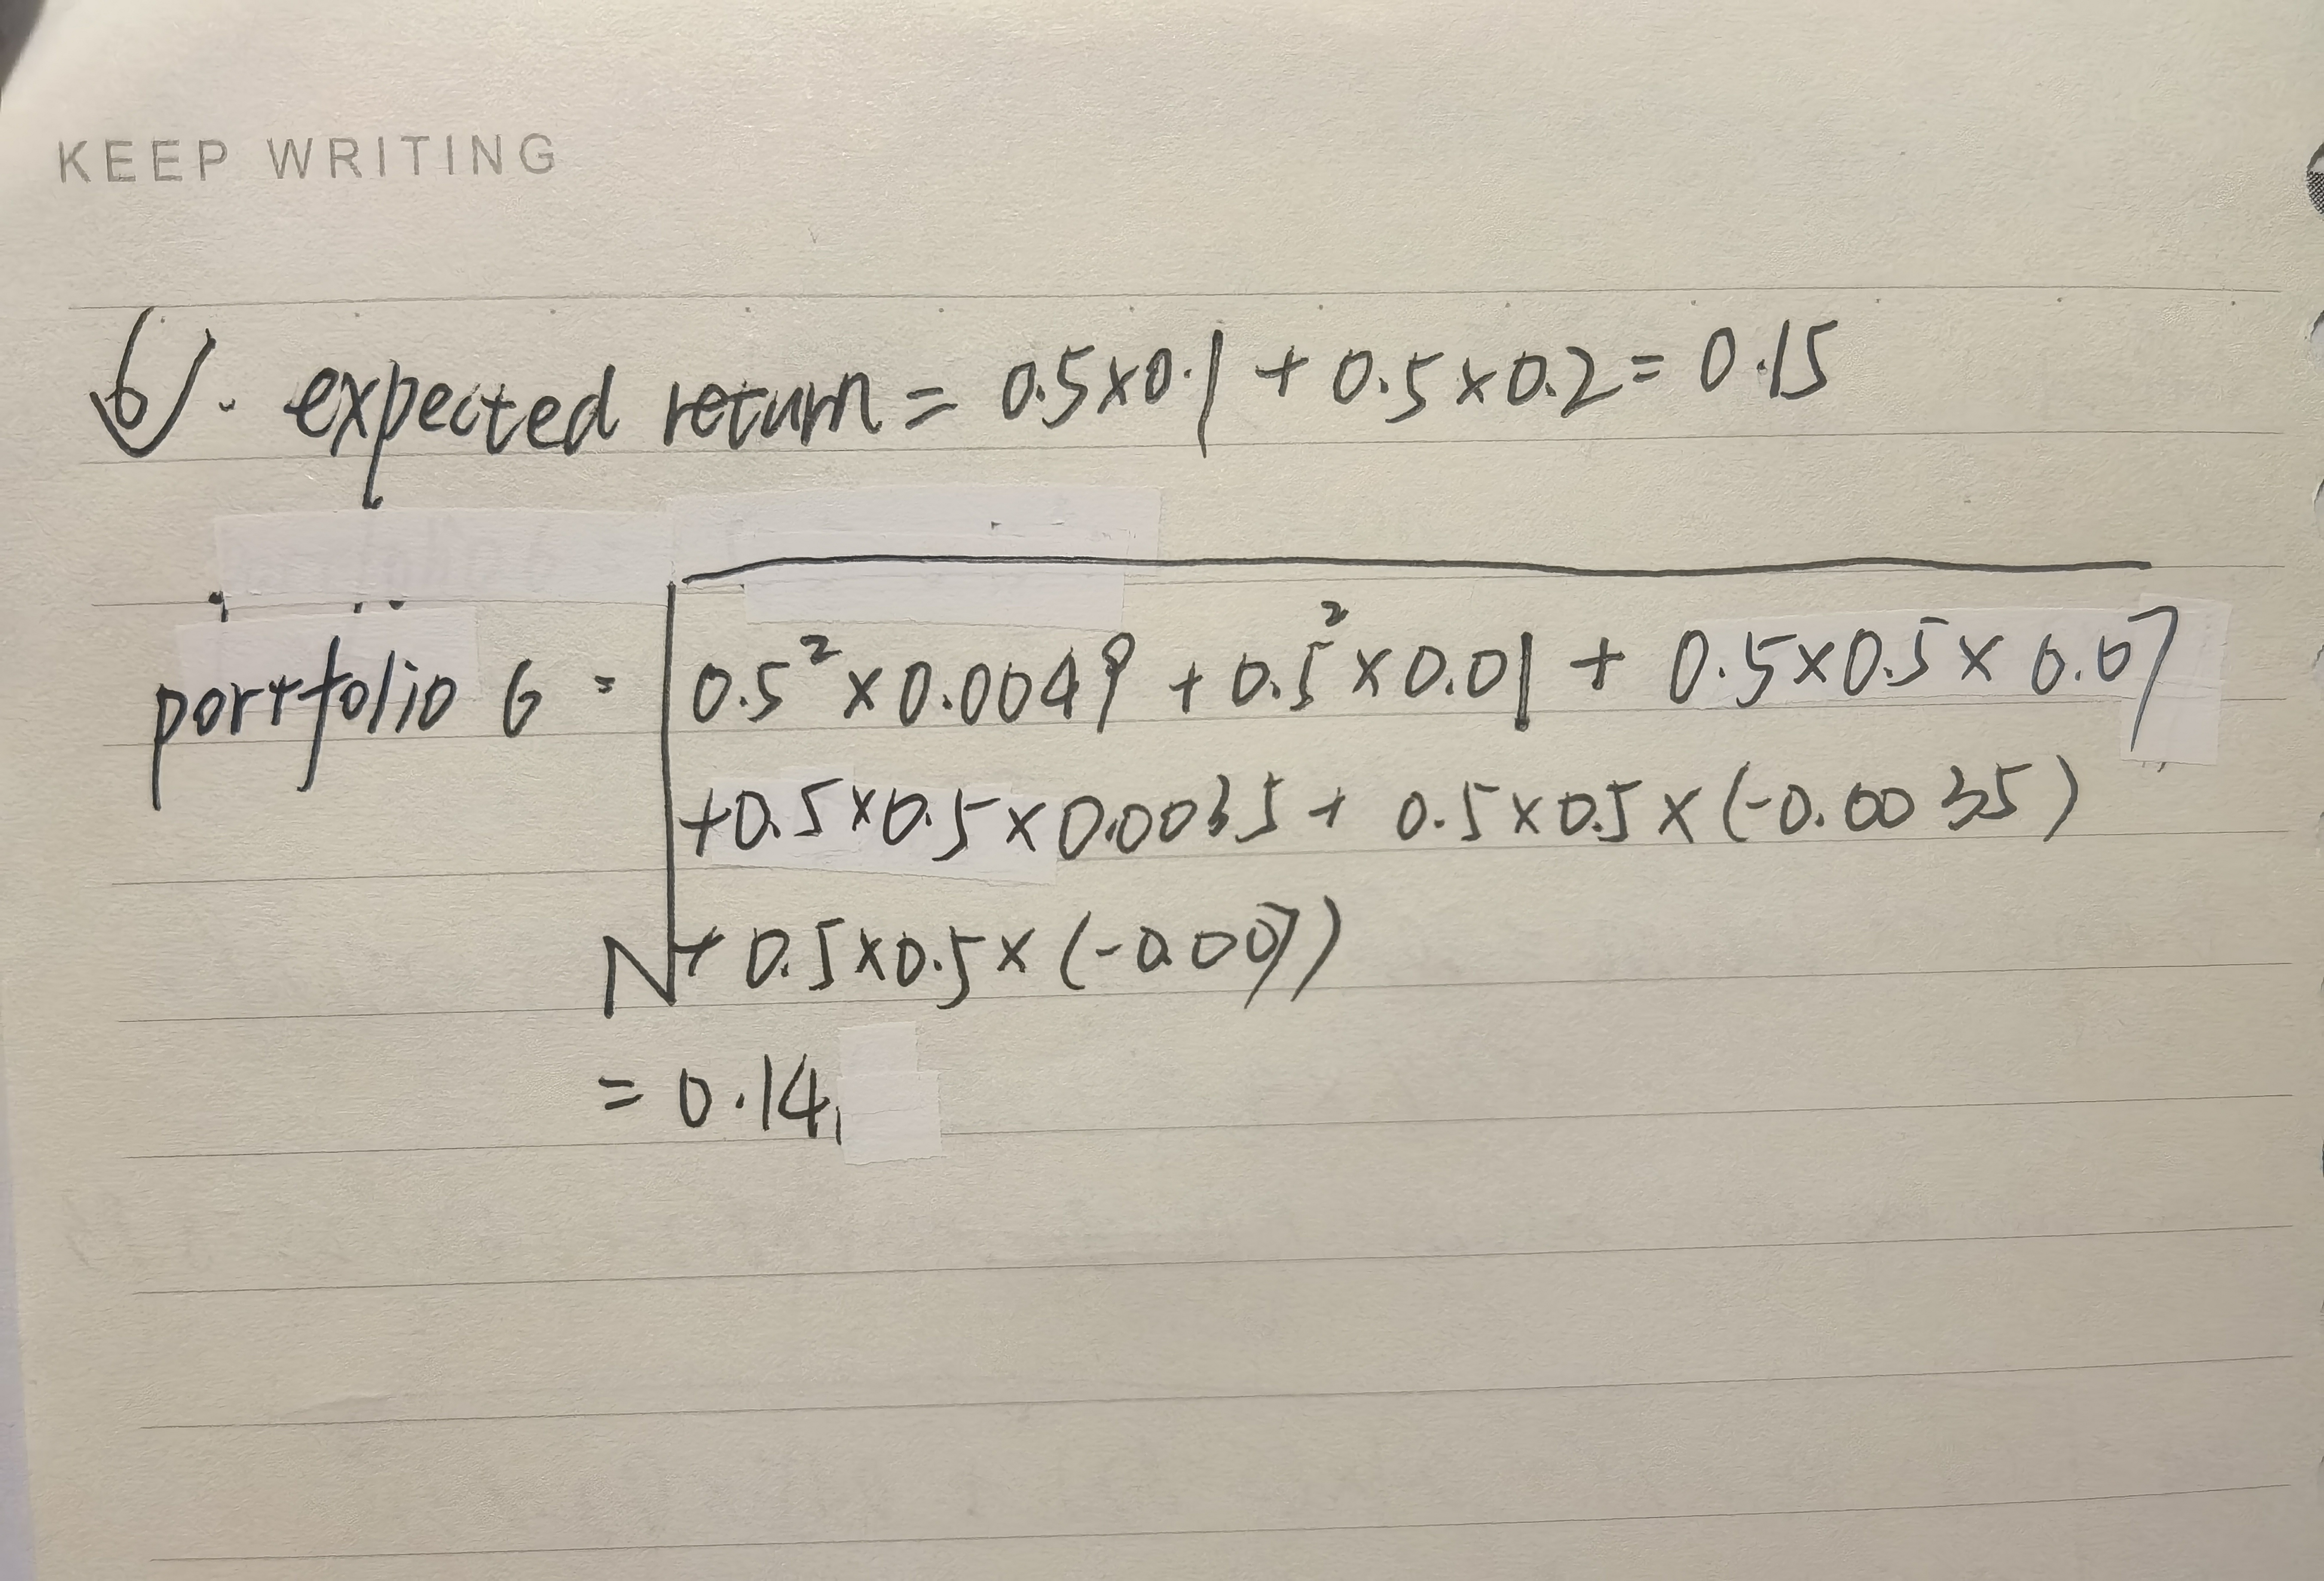 KEEP WRITING
6. expected return = 0.5×0.1 + 0.5×0.2 = 0.15
portfolio 6 = √0.5² × 0.0049 + 0.5² × 0.01 + 0.5×0.5× 0.07
+0.5×0.5×0.0035 + 0.5×0.5×(-0.0035)
+ 0.5×0.5×(-0.007)
= 0.14